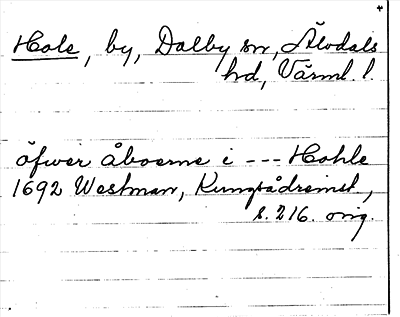 Hole, by, Dalby sn, Älvdals
hd, Värml. l.
öfwer åboerne i --- Hohle
1692 Westman, Kungsådreinst.,
s. 216. orig.